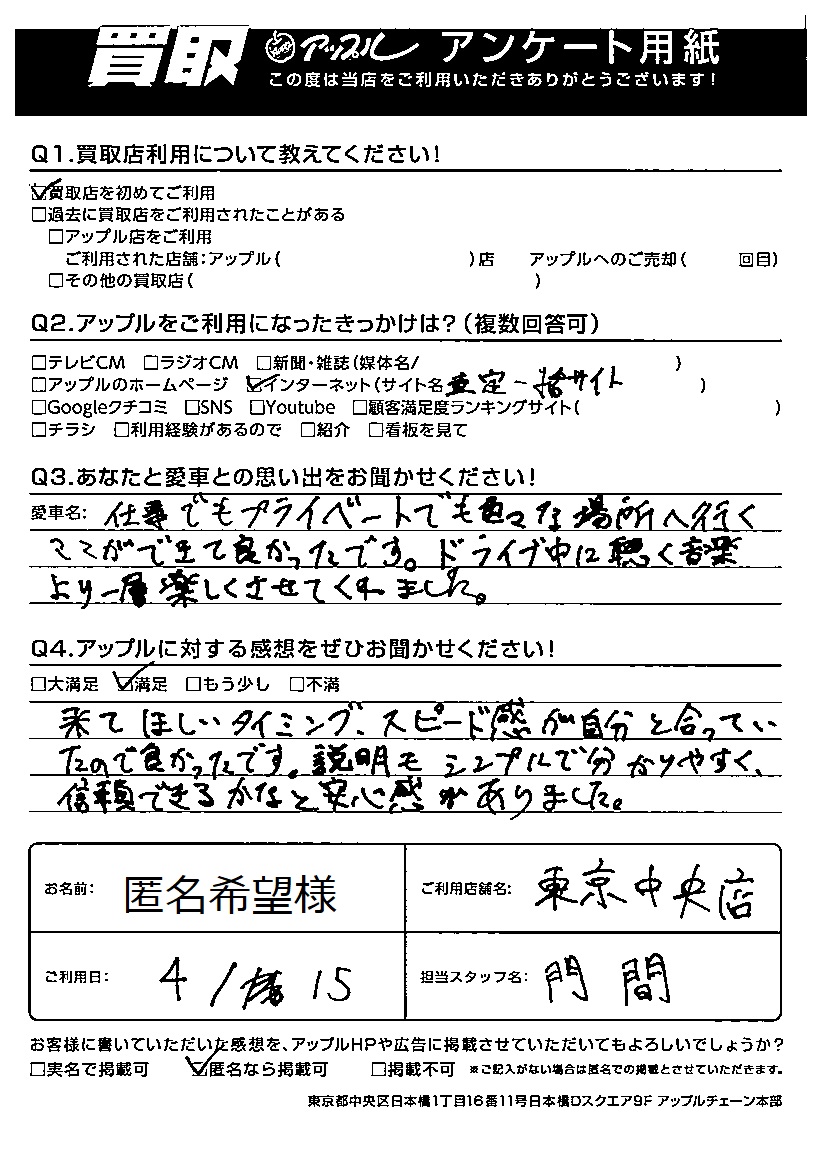 買取 アップル アンケート用紙
この度は当店をご利用いただきありがとうございます!
Q1.買取店利用について教えてください!
☑買取店を初めてご利用
□過去に買取店をご利用されたことがある
□アップル店をご利用
ご利用された店舗:アップル( )店 アップルへのご売却( 回目)
□その他の買取店( )
Q2.アップルをご利用になったきっかけは?(複数回答可)
□テレビCM □ラジオCM □新聞・雑誌(媒体名/ )
□アップルのホームページ ☑インターネット(サイト名 査定一括サイト )
□Googleクチコミ □SNS □Youtube □顧客満足度ランキングサイト( )
□チラシ □利用経験があるので □紹介 □看板を見て
Q3.あなたと愛車との思い出をお聞かせください!
愛車名: 仕事でもプライベートでも色々な場所へ行く
ことができて良かったです。ドライブ中に聴く音楽
より一層楽しくさせてくれました。
Q4.アップルに対する感想をぜひお聞かせください!
□大満足 ☑満足 □もう少し □不満
来てほしいタイミング、スピード感が自分と合ってい
たので良かったです。説明もシンプルで分かりやすく、
信頼できるかなと安心感がありました。
お名前: 匿名希望様 ご利用店舗名: 東京中央店
ご利用日: 4/15 担当スタッフ名: 門間
お客様に書いていただいた感想を、アップルHPや広告に掲載させていただいてもよろしいでしょうか?
□実名で掲載可 ☑匿名なら掲載可 □掲載不可 ※ご記入がない場合は匿名での掲載とさせていただきます。
東京都中央区日本橋1丁目16番11号日本橋Dスクエア9F アップルチェーン本部